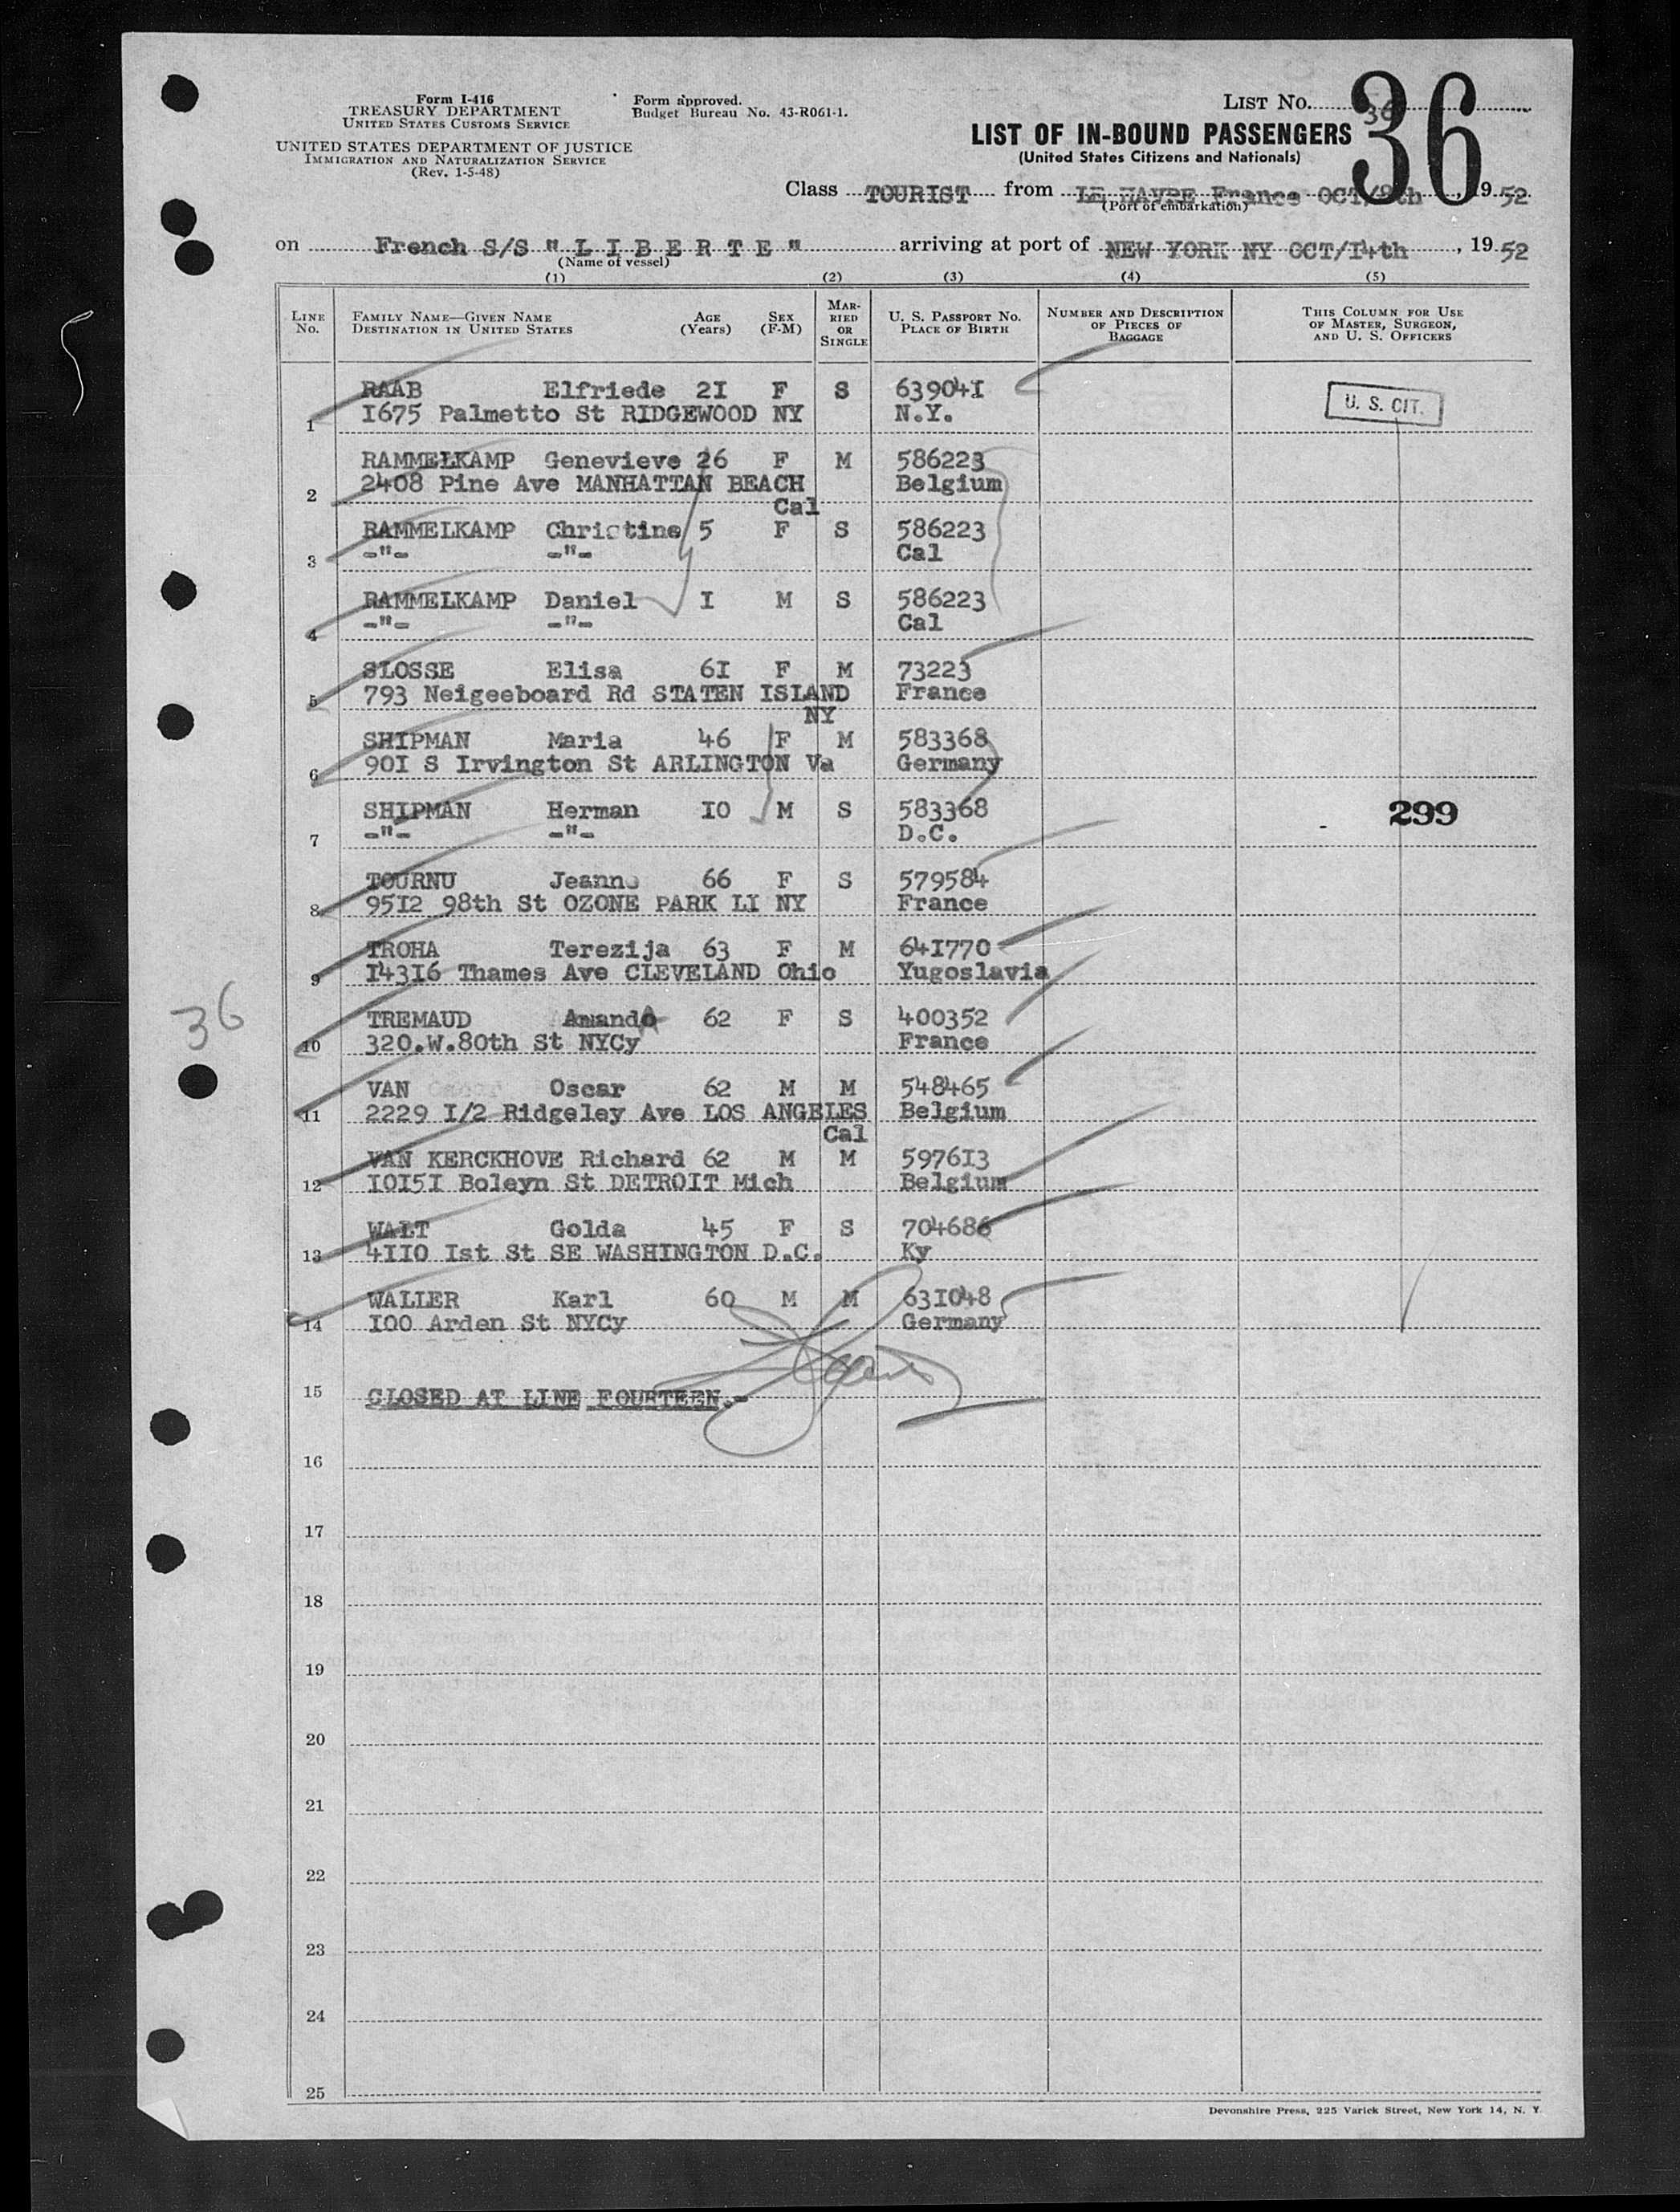 Form I-416
TREASURY DEPARTMENT
UNITED STATES CUSTOMS SERVICE
UNITED STATES DEPARTMENT OF JUSTICE
IMMIGRATION AND NATURALIZATION SERVICE
(Rev. 1-5-48)
Form approved.
Budget Bureau No. 43-R061-1.
LIST NO. 36
36
LIST OF IN-BOUND PASSENGERS
(United States Citizens and Nationals)
Class TOURIST from LE HAVRE France OCT/8th, 1952
(Port of embarkation)
on French S/S "L I B E R T E" arriving at port of NEW YORK NY OCT/I4th, 1952
(Name of vessel)
(1) (2) (3) (4) (5)
LINE NO. FAMILY NAME—GIVEN NAME DESTINATION IN UNITED STATES AGE (Years) SEX (F-M) MARRIED OR SINGLE U. S. PASSPORT NO. PLACE OF BIRTH NUMBER AND DESCRIPTION OF PIECES OF BAGGAGE THIS COLUMN FOR USE OF MASTER, SURGEON, AND U. S. OFFICERS
RAAB Elfriede 2I F S 63904I
U. S. CIT.
1 I675 Palmetto St RIDGEWOOD NY N.Y.
RAMMELKAMP Genevieve 26 F M 586223
2 2408 Pine Ave MANHATTAN BEACH Belgium
Cal
RAMMELKAMP Christine 5 F S 586223
3 -"- -"- Cal
RAMMELKAMP Daniel I M S 586223
4 -"- -"- Cal
SLOSSE Elisa 6I F M 73223
5 793 Neigeeboard Rd STATEN ISLAND France
NY
SHIPMAN Maria 46 F M 583368
6 90I S Irvington St ARLINGTON Va Germany
SHIPMAN Herman I0 M S 583368
299
7 -"- -"- D.C.
TOURNU Jeanne 66 F S 579584
8 95I2 98th St OZONE PARK LI NY France
TROHA Terezija 63 F M 64I770
9 I43I6 Thames Ave CLEVELAND Ohio Yugoslavia
36
TREMAUD AmandA 62 F S 400352
10 320.W.80th St NYCy France
VAN Oscar 62 M M 548465
11 2229 I/2 Ridgeley Ave LOS ANGELES Belgium
Cal
VAN KERCKHOVE Richard 62 M M 5976I3
12 I0I5I Boleyn St DETROIT Mich Belgium
WALT Golda 45 F S 704686
13 4II0 Ist St SE WASHINGTON D.C. Ky
WALLER Karl 60 M M 63I048
14 I00 Arden St NYCy Germany
15 CLOSED AT LINE FOURTEEN.-
16
17
18
19
20
21
22
23
24
25
Devonshire Press, 225 Varick Street, New York 14, N. Y.